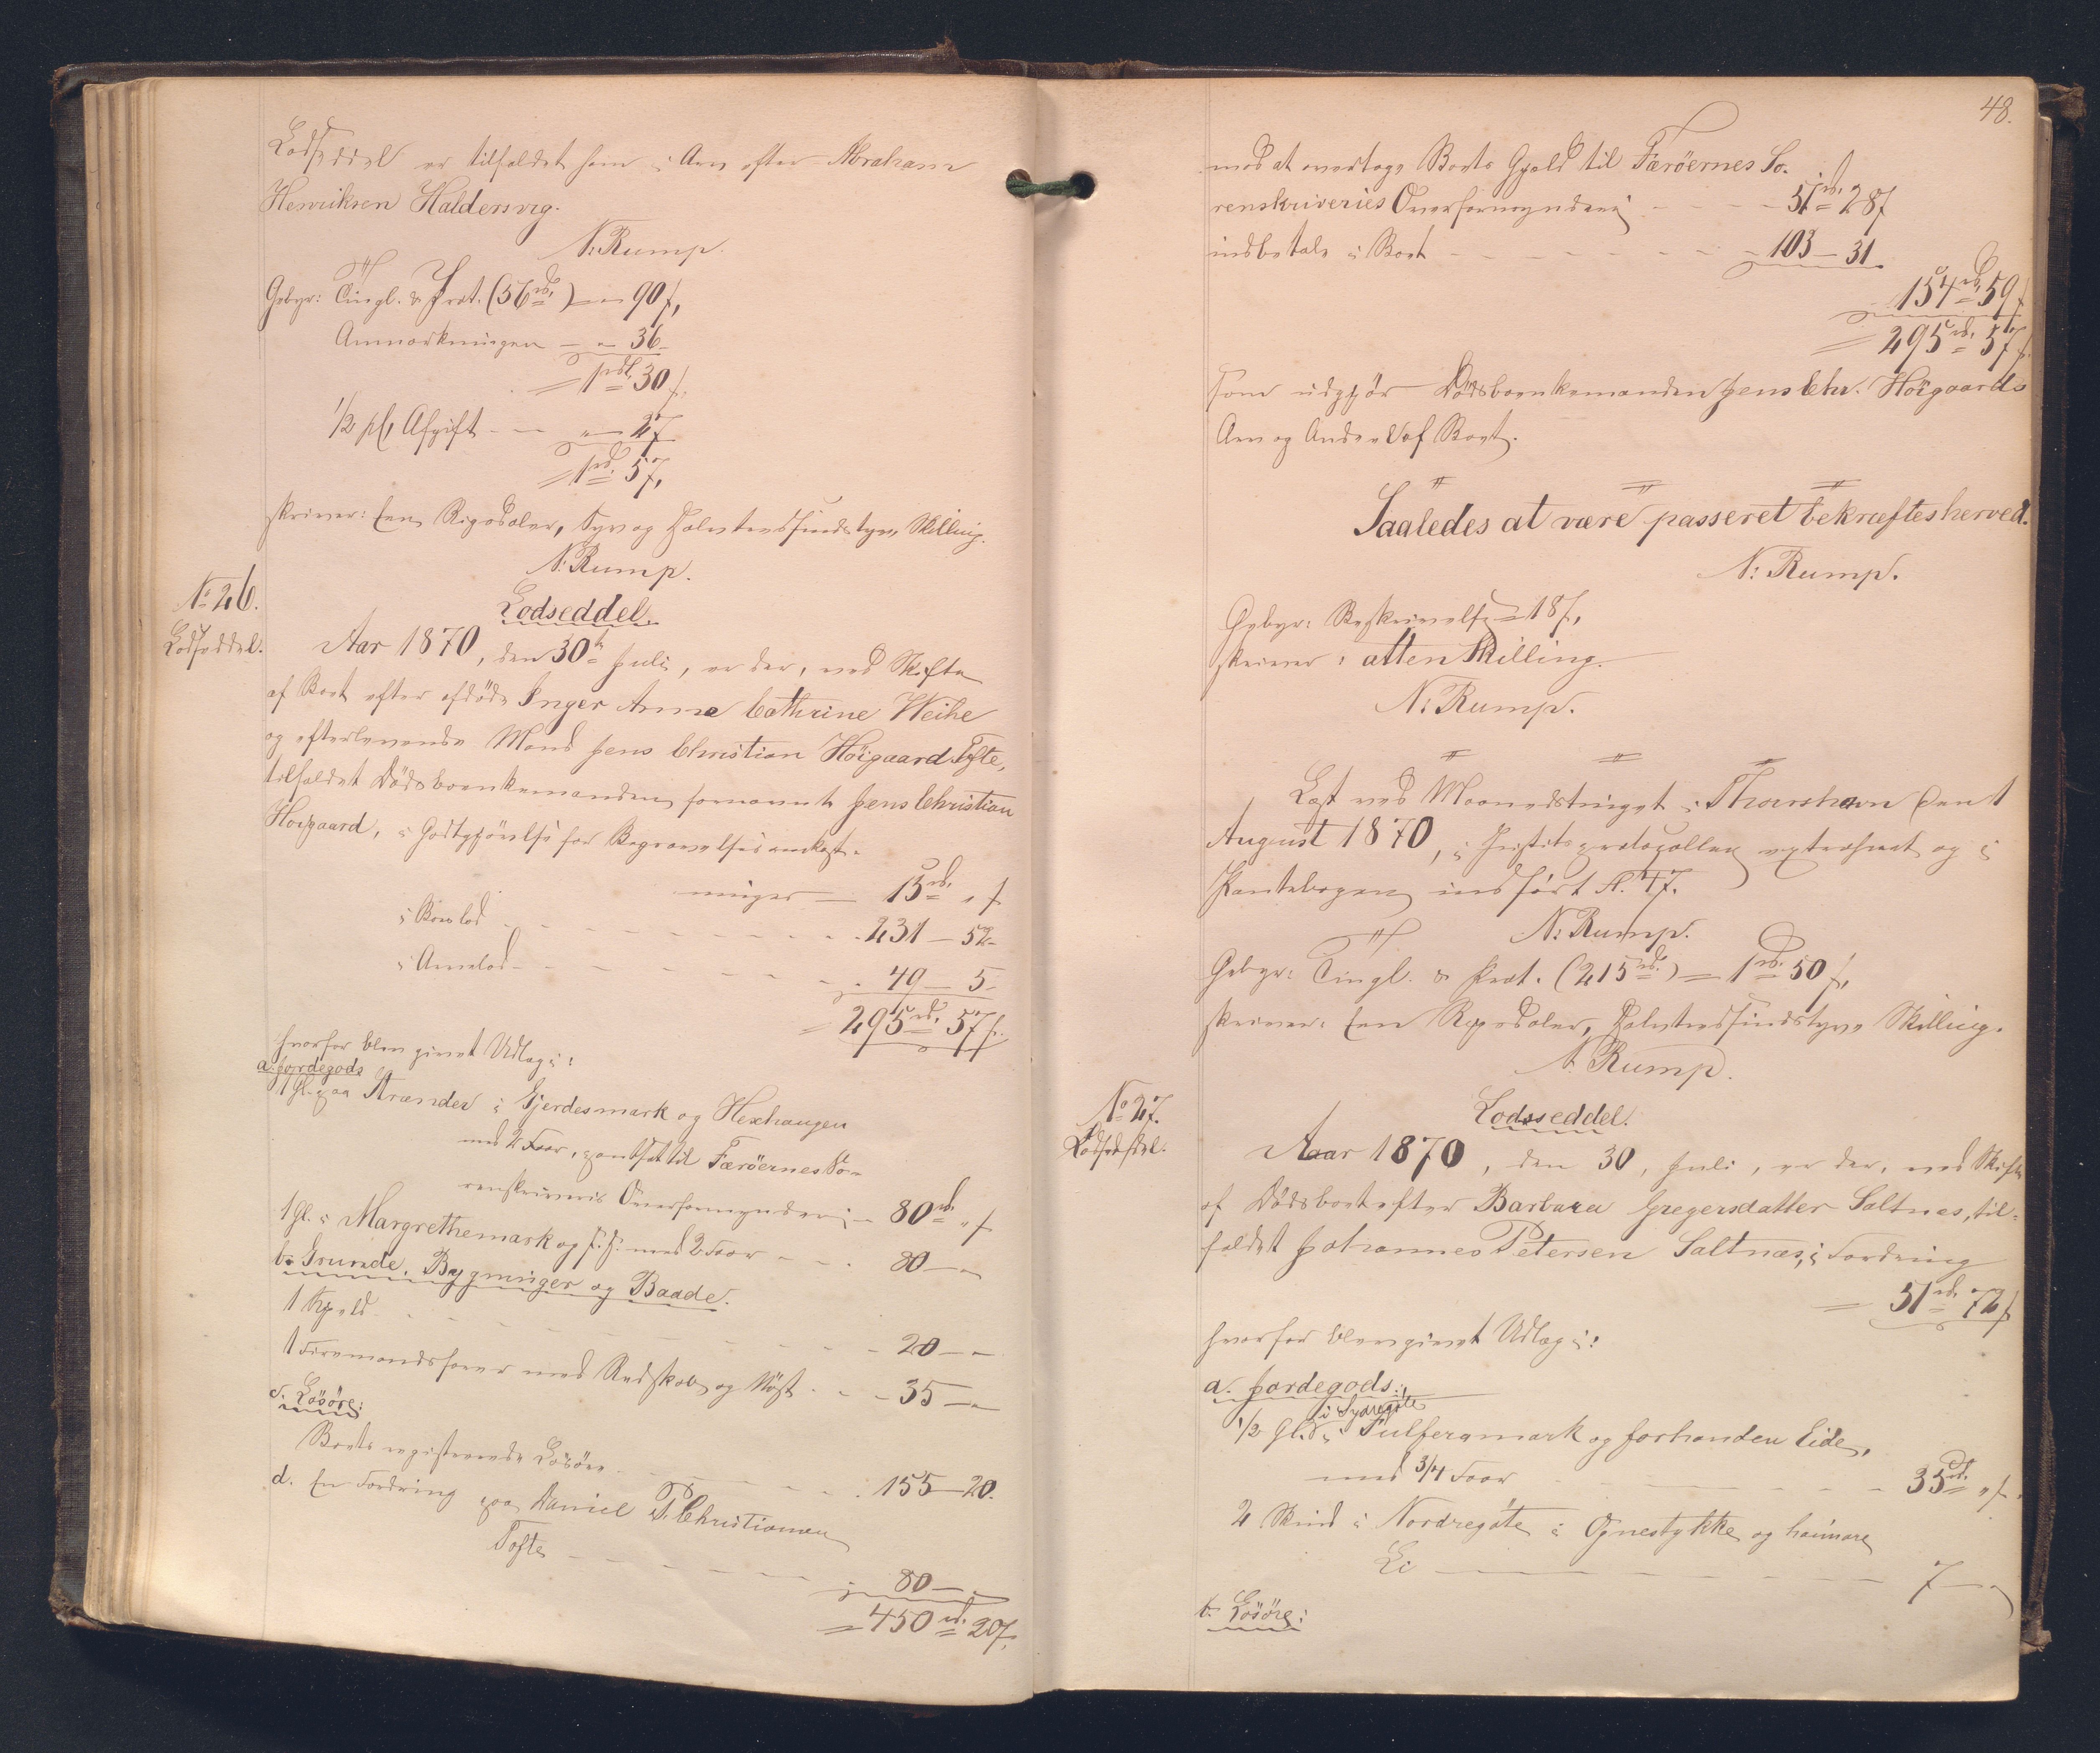 Lodseddel er tilfaldet ham i Arv efter Abraham
Henriksen Haldersvig.
N: Rump.
Gebyr: Tingl. & Prot. (56rd.) = „ 90ſ,
Anmærkningen — „ 36
= 1rdl. 30ſ.
1/2 pCt Afgift — „ — 27
= 1rd. 57,
skriver: Een Rigsdaler, Syv og Halvtredsindstyve Skilling.
N: Rump.
No 26.
Lodseddel.
Lodseddel.
Aar 1870, den 30te Juli, er der, ved Skifte
af Boet efter afdøde Inger Anna Cathrine Weihe
og efterlevende Mand Jens Christian Høigaard Tofte,
tilfaldet Dødsboenkemanden fornævnte Jens Christian
Høigaard, i Godtgjørelse for Begravelsesomkost-
ninger — 15rd. „ ſ
i Boeslod — 231 — 52
i Arvelod — 49 — 5
= 295rd. 57ſ.
hvorfor blev givet Udlæg i:
a. Jordegods
1 Gl. paa Strænder i Gjerdesmark og Hexhaugen
med 2 Faar, pantsat til Færöernes So-
renskriveris Overformynderi — 80rd. „ ſ
1 Gl. i Margrethemark og f. f. med 2 Faar — 80 — „
b. Grunde, Bygninger og Baade.
1 Kjeld — 20 — „
1 Firemandsfarer med Redskab og Nøst — 35 — „
c. Løsøre:
Boets registrerede Løsøre — 155 — 20.
d. En Fordring paa Daniel P. Christiansen
Tofte — 80 —
= 450rd. 20ſ.
48.
mod at overtage Boets Gjæld til Færöernes So-
renskriveries Overformynderi — 51rd. 28ſ
indbetale i Boet — 103 — 31
154rd. 59ſ
= 295rd. 57ſ.
som udgjør Dødsboenkemanden Jens Chr. Høigaards
Arv og Andeel af Boet.
Saaledes at være passeret bekræftes herved.
N: Rump.
Gebyr: Beskrivelse = 18ſ,
skriver: atten Skilling.
N: Rump.
Læst ved Maanedstinget i Thorshavn den 1
August 1870, i Justitsprotocollen extraheret og i
Pantebogen indført fl. 47.
N: Rump.
Gebyr: Tingl. & Prot. (215rd.) = 1rd. 50ſ,
skriver: Een Rigsdaler, Halvtredsindstyve Skilling.
N. Rump.
No 27.
Lodseddel.
Lodsseddel.
Aaar 1870, den 30, Juli, er der, ved Skifte
af Dødsboet efter Barbara Gregersdatter Saltnes, til-
faldet Johannes Petersen Saltnæs, i Fordring
= 51rd. 72ſ
hvorfor blev givet Udlæg i:
a. Jordegods:
i Sydregøte
1/2 Gl. i Tulferamark og forhanden Eide,
med 3/4 Faar — 35rd. „ ſ.
2 Skind i Nordregøte i Ognestykke og haimare
Li — 7 — „
b. Løsøre: